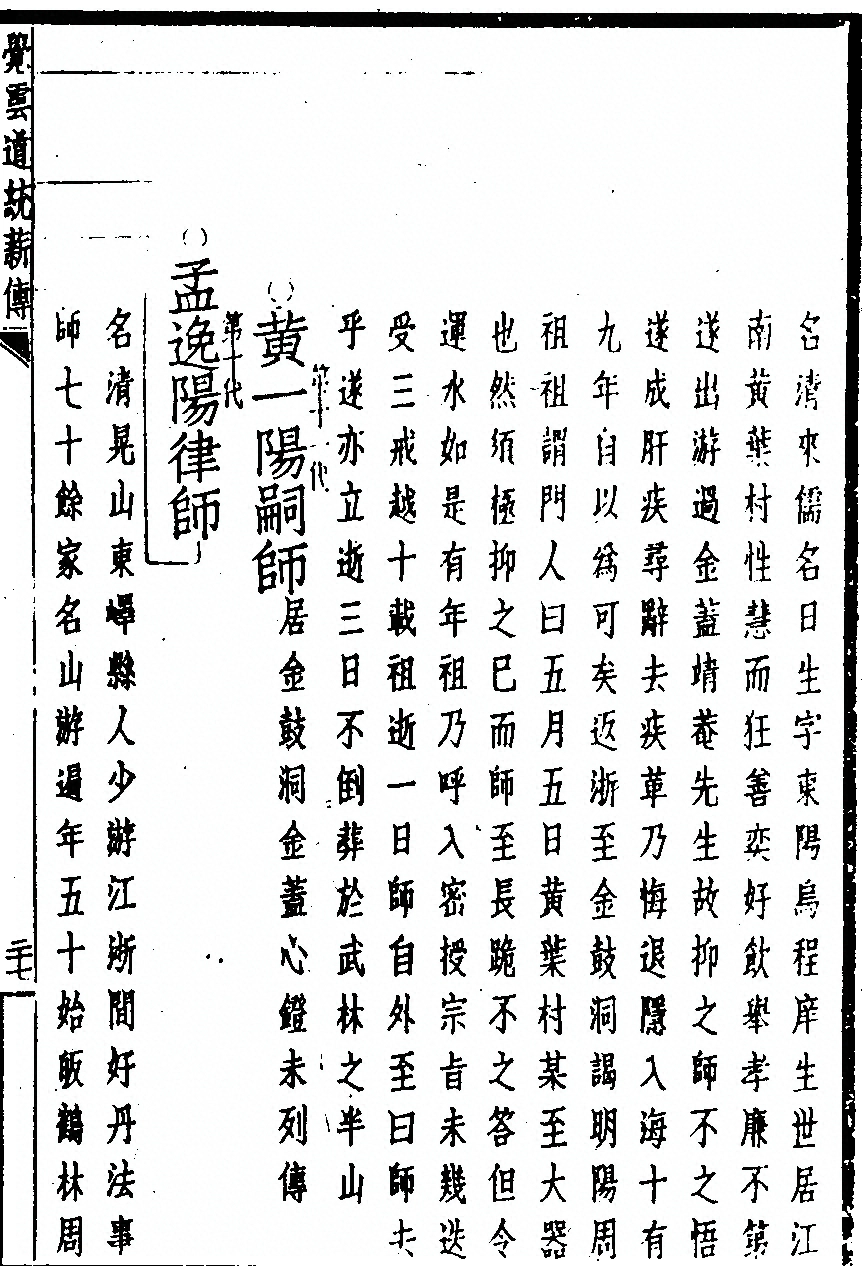 名清來儒名日生字東陽烏程庠生世居江
南黃葉村性慧而狂善奕好飲舉孝廉不第
遂出游過金蓋靖菴先生故抑之師不之悟
遂成肝疾尋辭去疾革乃悔退隱入海十有
九年自以為可矣返浙至金鼓洞謁明陽周
祖祖謂門人曰五月五日黃葉村某至大器
也然須極抑之巳而師至長跪不之答但令
運水如是有年祖乃呼入密授宗旨未幾迭
受三戒越十載祖逝一日師自外至曰師去
乎遂亦立逝三日不倒葬於武林之半山
第十一代
黃一陽嗣師居金鼓洞金蓋心鐙未列傳
第十代
孟逸陽律師
名清晃山東嶧縣人少游江浙間好丹法事
師七十餘家名山游遍年五十始皈鶴林周
覺雲道統薪傳
二十七